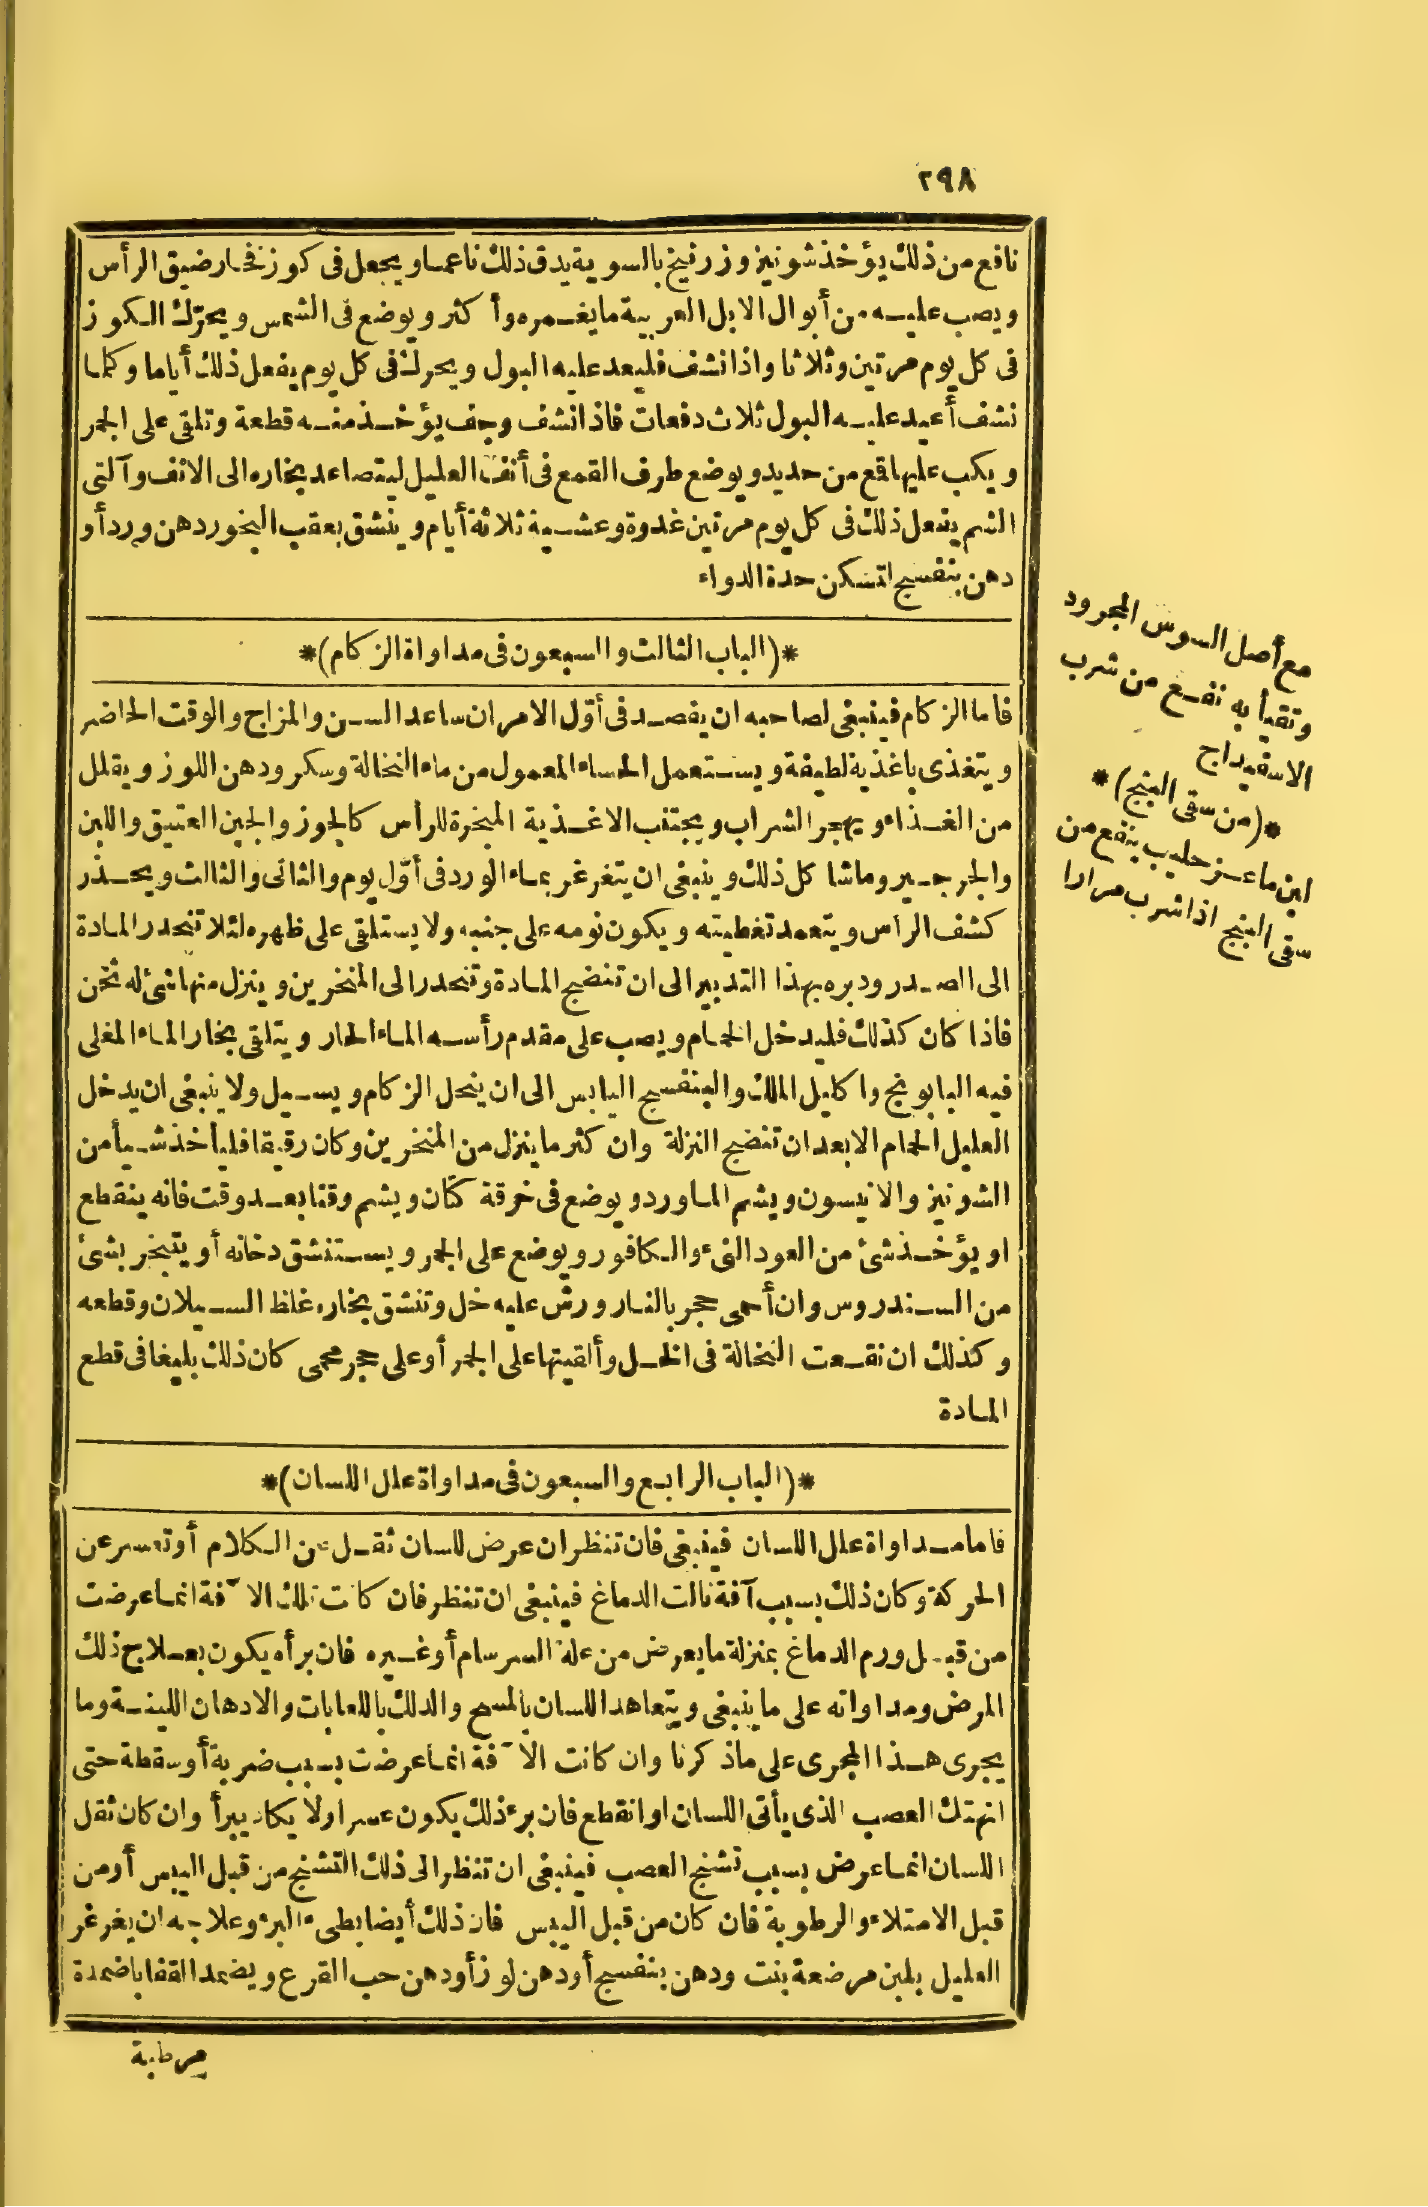 ٢٩٨
نافع من ذلك يؤخذ شونيز وزرنيخ بالسوية يدق ذلك ناعما ويجعل فى كوز فخار ضيق الرأس
ويصب عليه من أبوال الابل العربية ما يغمره وأكثر ويوضع فى الشمس ويحرّك الكوز
فى كل يوم مرتين وثلاثا واذا نشف فليعد عليه البول ويحرك فى كل يوم يفعل ذلك أياما وكلما
نشف أعيد عليه البول ثلاث دفعات فاذا نشف وجف يؤخذ منه قطعة وتلقى على الجمر
ويكب عليها قمع من حديد ويوضع طرف القمع فى أنف العليل ليتصاعد بخاره الى الانف وآلتى
الشم يفعل ذلك فى كل يوم مرتين غدوة وعشية ثلاثة أيام وينشق بعقب البخور دهن ورد أو
دهن بنفسج لتسكن حدة الدواء
*(الباب الثالث والسبعون فى مداواة الزكام)*
فاما الزكام فينبغى لصاحبه ان يفصد فى أوّل الامر ان ساعد السن والمزاج والوقت الحاضر
ويتغذى باغذية لطيفة ويستعمل الحساء المعمول من ماء النخالة وسكر ودهن اللوز ويقلل
من الغذاء ويهجر الشراب ويجتنب الاغذية المبخرة للرأس كالجوز والجبن العتيق واللبن
والجرجير وماشا كل ذلك وينبغى ان يتغرغر بماء الورد فى أوّل يوم والثانى والثالث ويحذر
كشف الرأس ويتعمد تغطيته ويكون نومه على جنبه ولا يستلقى على ظهره لئلا تنحدر المادة
الى الصدر ودبره بهذا التدبير الى ان تنضج المادة وتنحدر الى المنخرين وينزل منها شئ له ثخن
فاذا كان كذلك فليدخل الحمام ويصب على مقدم رأسه الماء الحار ويتلقى بخار الماء المغلى
فيه البابونج واكليل الملك والبنفسج اليابس الى ان ينحل الزكام ويسيل ولا ينبغى ان يدخل
العليل الحمام الا بعد ان تنضج النزلة وان كثر ما ينزل من المنخرين وكان رقيقا فليأخذ شيأ من
الشونيز والانيسون ويشم الماورد ويوضع فى خرقة كتّان ويشم وقتا بعد وقت فانه ينقطع
او يؤخذ شئ من العود النىء والكافور ويوضع على الجمر ويستنشق دخانه أو يتبخر بشئ
من السندروس وان أحمى حجر بالنار ورش عليه خل وتنشق بخاره غلظ السيلان وقطعه
وكذلك ان نقعت النخالة فى الخل وألقيتها على الجمر أو على حجر محمى كان ذلك بليغا فى قطع
المادة
*(الباب الرابع والسبعون فى مداواة علل اللسان)*
فاما مداواة علل اللسان فينبغى فان تنظر ان عرض للسان ثقل عن الكلام أو تعسر عن
الحركة وكان ذلك بسبب آفة نالت الدماغ فينبغى ان تنظر فان كانت تلك الآفة انما عرضت
من قبل ورم الدماغ بمنزلة ما يعرض من علة السرسام أو غيره فان برأه يكون بعلاج ذلك
المرض ومداواته على ما ينبغى ويتعاهد اللسان بالمسح والدلك باللعابات والادهان اللينة وما
يجرى هذا المجرى على ماذكرنا وان كانت الآفة انما عرضت بسبب ضربة أو سقطة حتى
انهتك العصب الذى يأتى اللسان او انقطع فان برء ذلك يكون عسرا ولا يكاد يبرأ وان كان ثقل
اللسان انما عرض بسبب تشنج العصب فينبغى ان تنظر الى ذلك التشنج من قبل اليبس أومن
قبل الامتلاء والرطوبة فان كان من قبل اليبس فان ذلك أيضا بطىء البرء وعلاجه ان يغرغر
العليل بلبن مرضعة بنت ودهن بنفسج أو دهن لوز أو دهن حب القرع ويضمد القفا باضمدة
مرطبة
مع أصل السوس المجرود
وتقيأ به نفع من شرب
الاسفيداج
*(من سقى البنج)*
لبن ماعز حليب ينفع من
سقى البنج اذا شرب مرارا